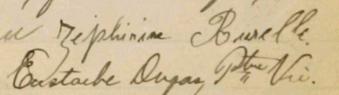 Zephirine Ruelle.
Eustache Dugas Ptre Vic.